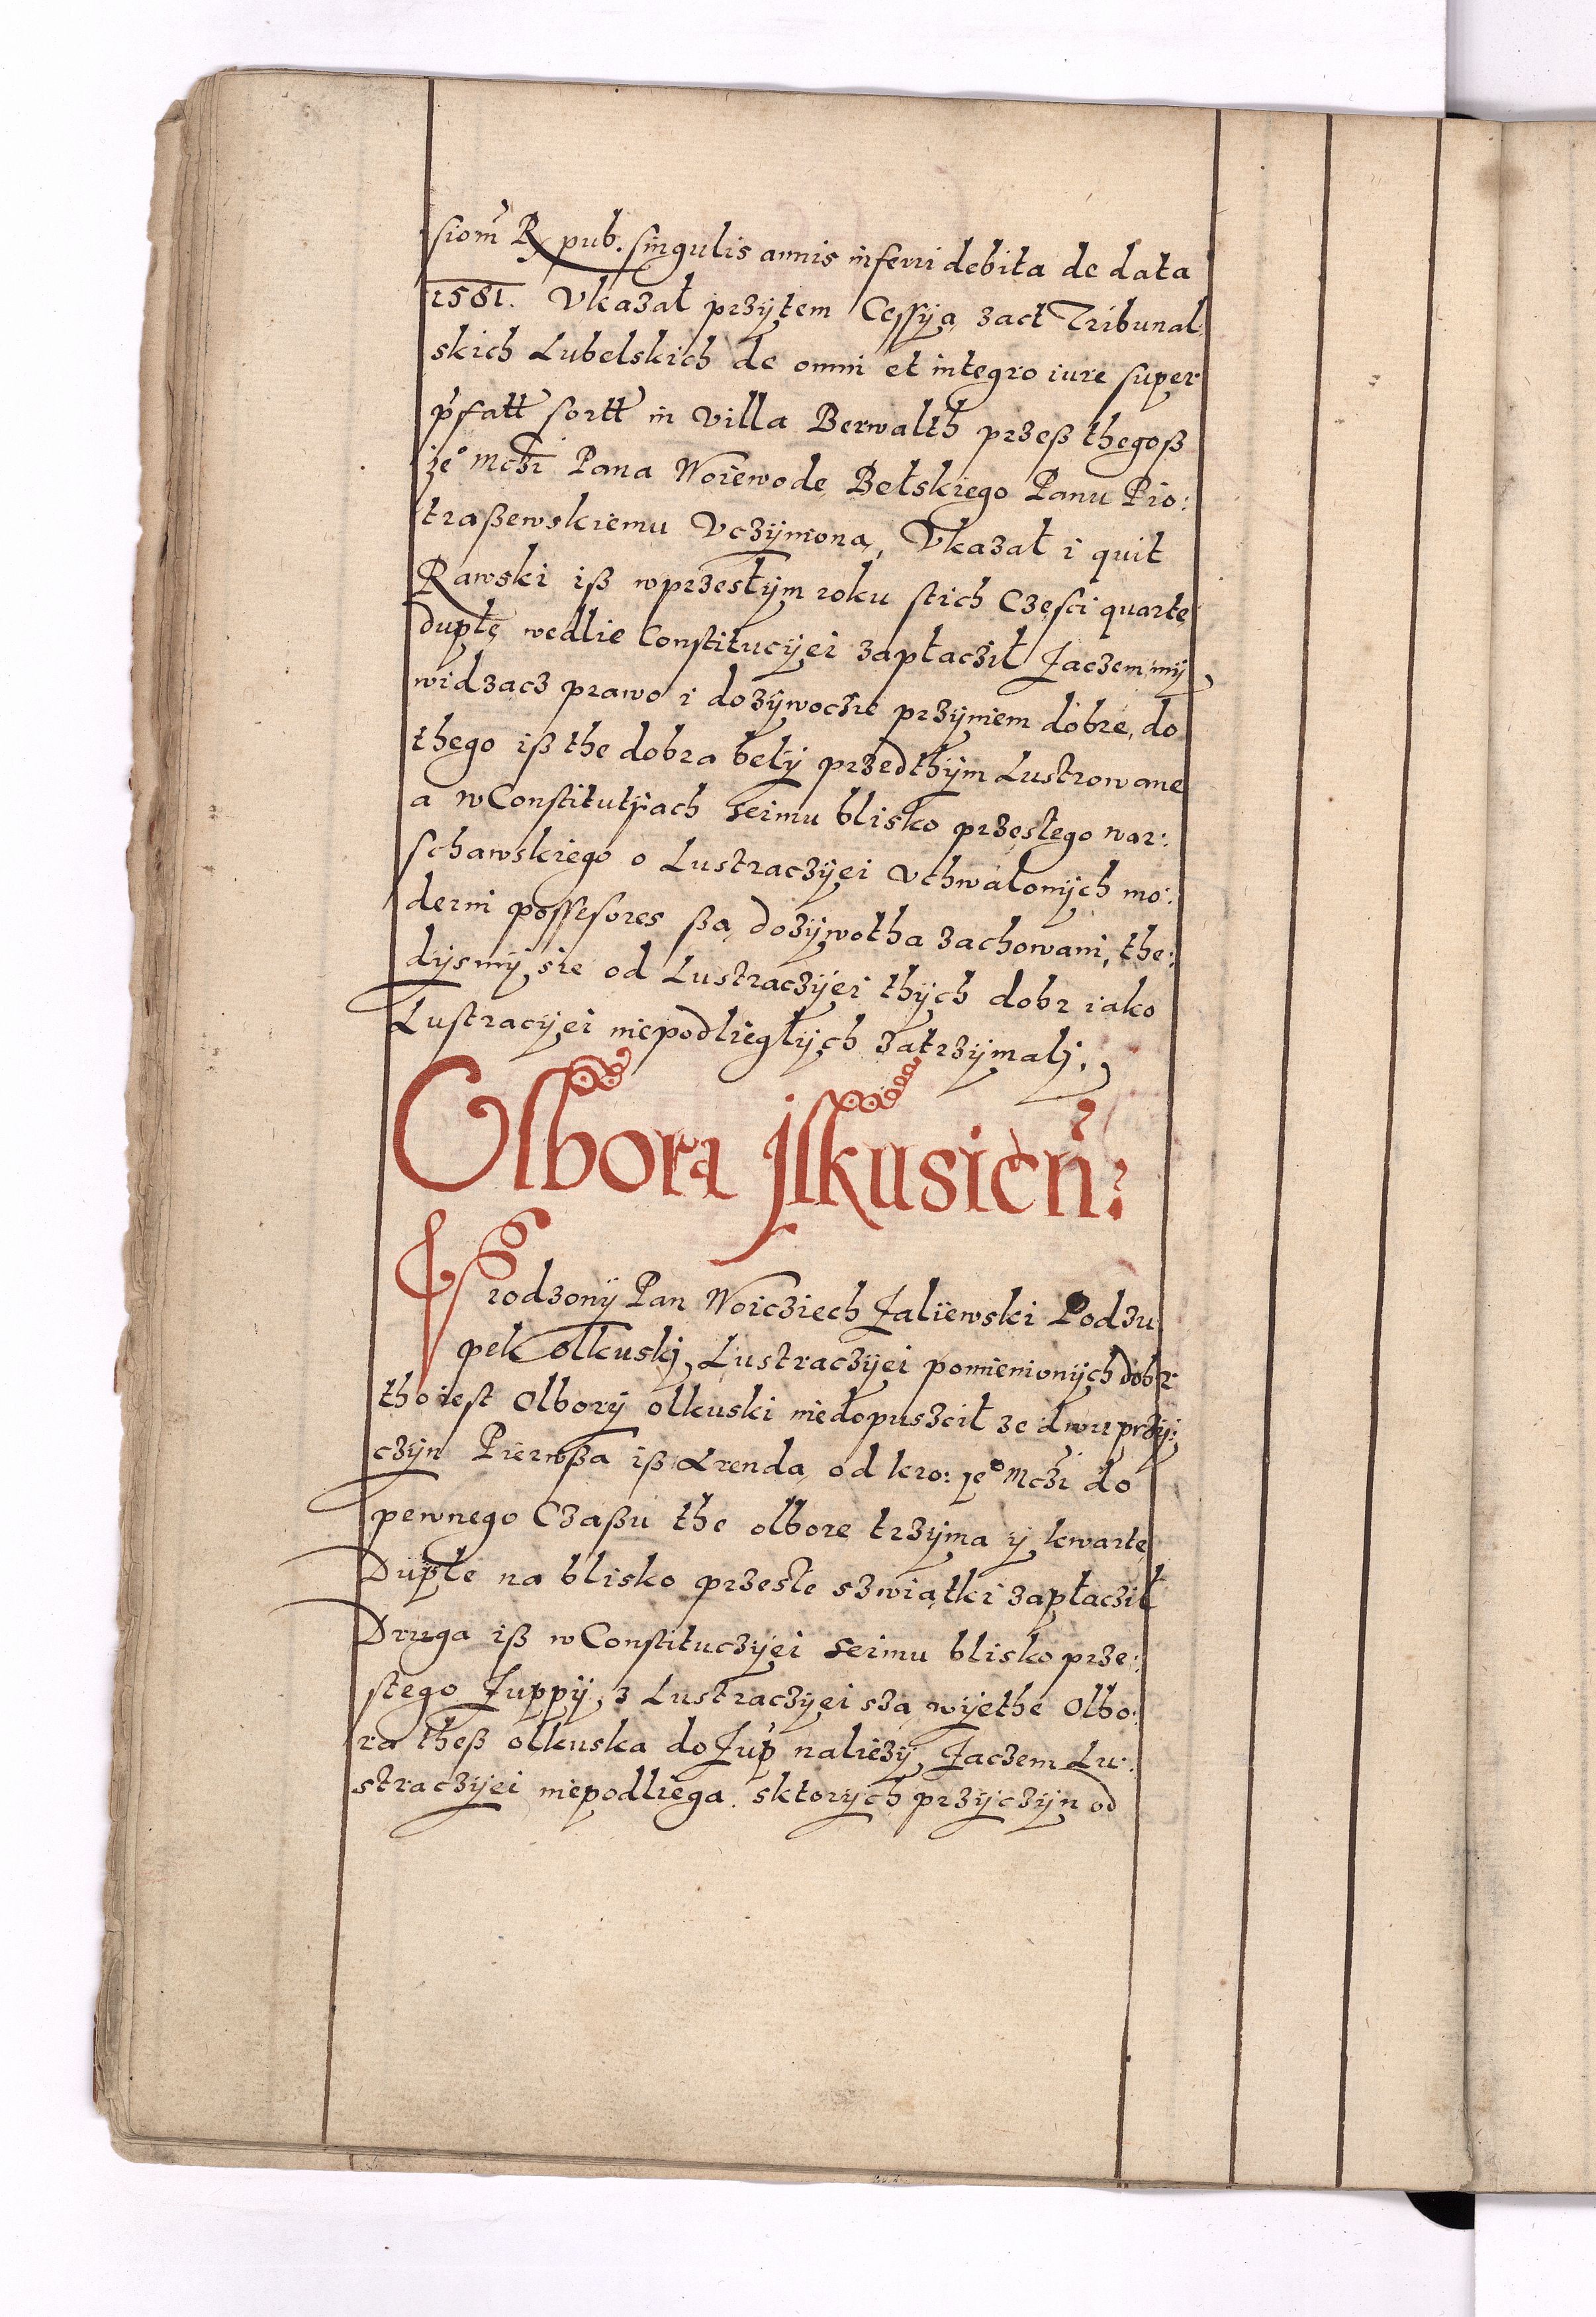 siom̃ R pub. singulis annis inferri debita de data
1581. Vkazał przÿtem Cessÿą zact Tribunal
skich Lubelskich de omni et integro iure super
p̃fatt sortt in Villa Berwalth przeß thegoß
ie° Mczi Pana Woiewodę Bełskiego Panu Pio:
traßewskiemu Vczÿniona, Vkazał i quit
Rawski iß wprzesłÿm roku stich Części quartę
dupłę wedlie Constitucÿei zapłacził Zaczem mÿ
widzącz prawo i dozÿwoczie przÿniem dobre, do
thego iß the dobra belÿ przedthÿm Lustrowane
a wConstitutÿiach Seimu blisko przesłego war:
schawskiego o Lustraczÿei Vchwalonÿch mo:
derni possesores ßą dozÿwotha zachowani, the:
dÿsmÿ sie od Lustraczÿei thÿch dobr iako
Lustracÿei niepodliegłÿch zatrzÿmalj.
Olbora jlkusień:
Vrodzonÿ Pan Woicziech Zalÿewski Podzu
pek olkuskj Lustraczÿei pomienionÿch dobr
tho iest Olborÿ olkuski niedopuszcił ze dwu przÿ:
czÿn Pierwßa iß Arendą od kro: ie° Mczi do
pewnego Czaßu the olbore trzÿma ÿ kwartę
Dupłe na blisko przesłe szwiątki zapłacził
Druga iß wConstituczÿei Seimu blisko prze:
słego Zuppÿ z Lustraczÿei szą wÿethe Olbo:
ra theß olkuska do Zup̃ nalieżÿ Zaczem Lu:
straczÿei niepodliega. sktorÿch przÿczÿn od